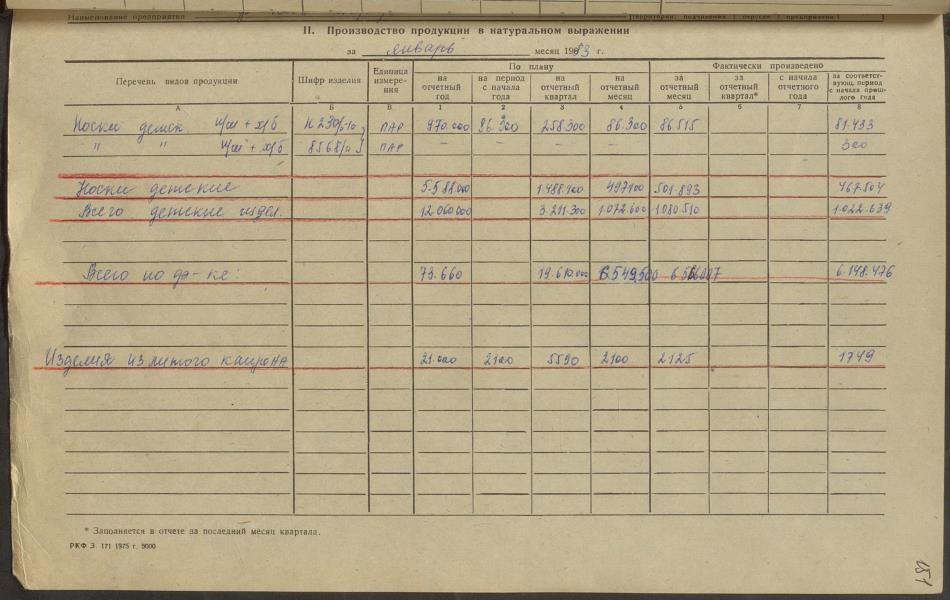 Наименование предприятия
II. Производство продукции в натуральном выражении
за январь месяц 1983 г.
Перечень видов продукции Шифр изделия Единица измере-ния По плану Фактически произведено
на отчетный год на период с начала года на отчетный квартал на отчетный месяц за отчетный месяц за отчетный квартал* с начала отчетного года за соответст-вующ. период с начала прош-лого года
А Б В 1 2 3 4 5 6 7 8
Носки детск. п/ш + х/б ПАР 970.000 86.300 258.300 86.300 86.515 81.493
" " п/ш + х/б ПАР – – – – 300
Носки детские 5.588.000 1.488.400 497400 501.893 467.504
Всего детские издел. 12.060.000 3.211.300 1.072.600 1.080.510 1.022.639
Всего по ф-ке: 73.660 19.610.000 6.549.500 6.148.476
Изделия из литого капрона 21.000 2100 5590 2100 2125 1749
* Заполняется в отчете за последний месяц квартала.
РКФ З. 171 1975 г. 5000
151